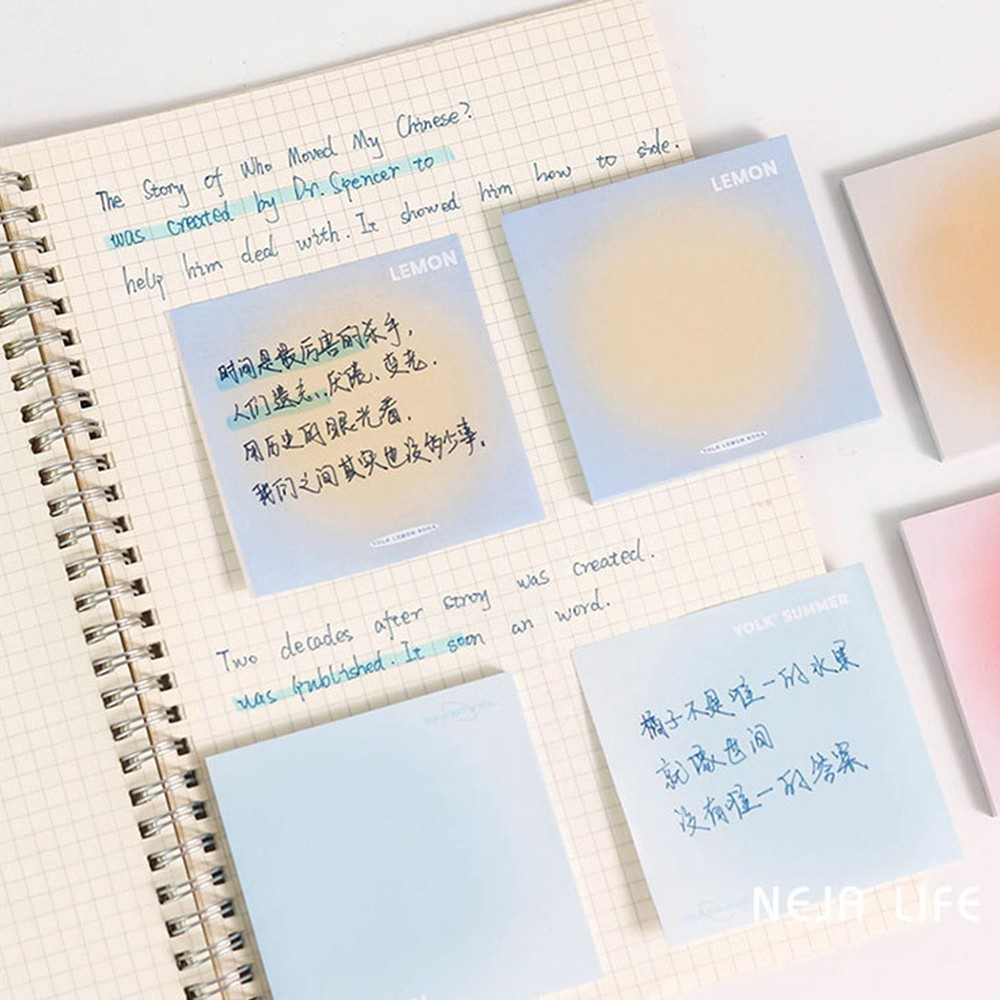 The Story of Who Moved My Chinese?
was created by Dr. Spencer to
help him deal with. It showed him how to side.
LEMON
时间是最厉害的杀手，
人们遗忘、厌倦、变老.
用历史的眼光看，
我们之间其实也没多少事。
YOLK LEMON SODA
LEMON
YOLK LEMON SODA
Two decades after stroy was created.
was published. It soon an word.
YOLK' SUMMER
橘子不是唯一的水果
就像世间
没有唯一的答案
NEJA LIFE